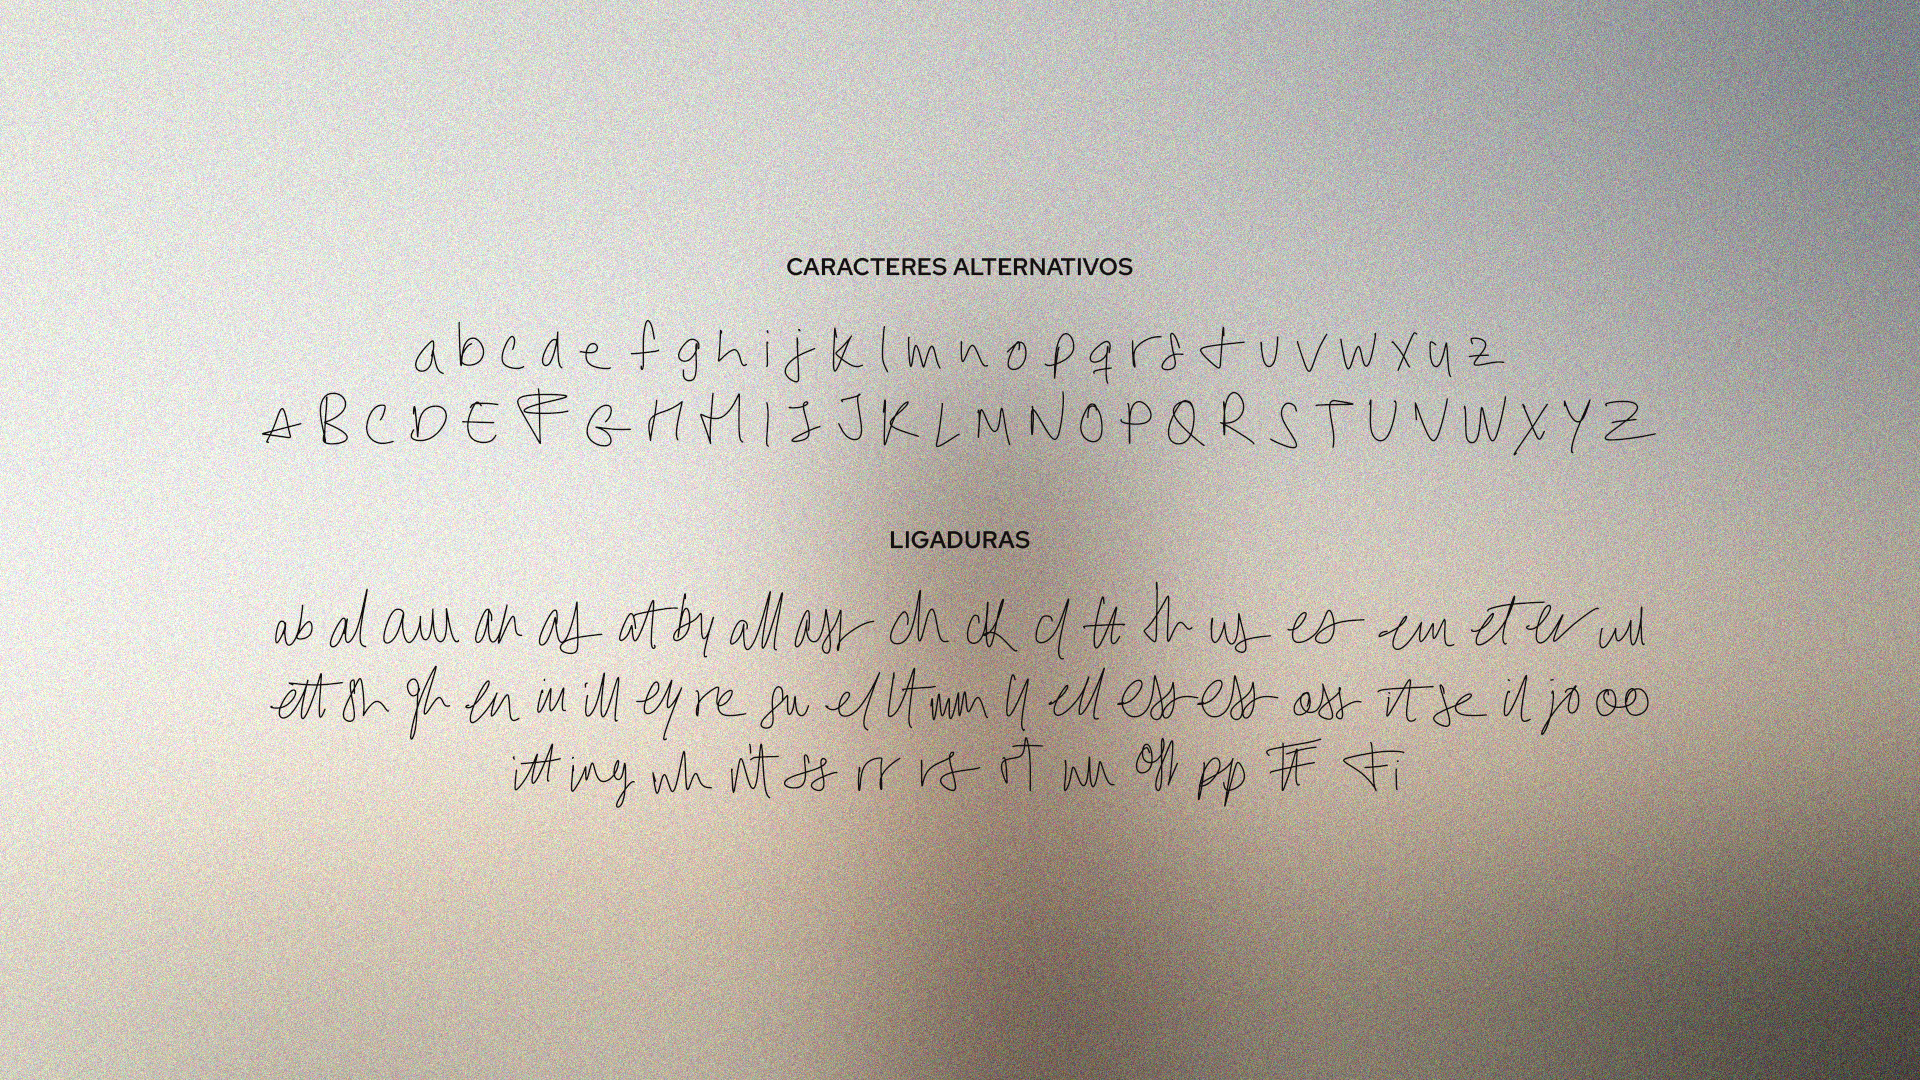 CARACTERES ALTERNATIVOS
a b c d e f g h i j k l m n o p q r s t u v w x y z
A B C D E F G H H I J J K L M N O P Q R S T U V W X Y Z
LIGADURAS
ab al an as at by all ch ck es et er
ett sh gh en in ill ey re el lt ell ess ess oss it se il jo oo
itt ing wh nt ss rr rs rt off pp Fi